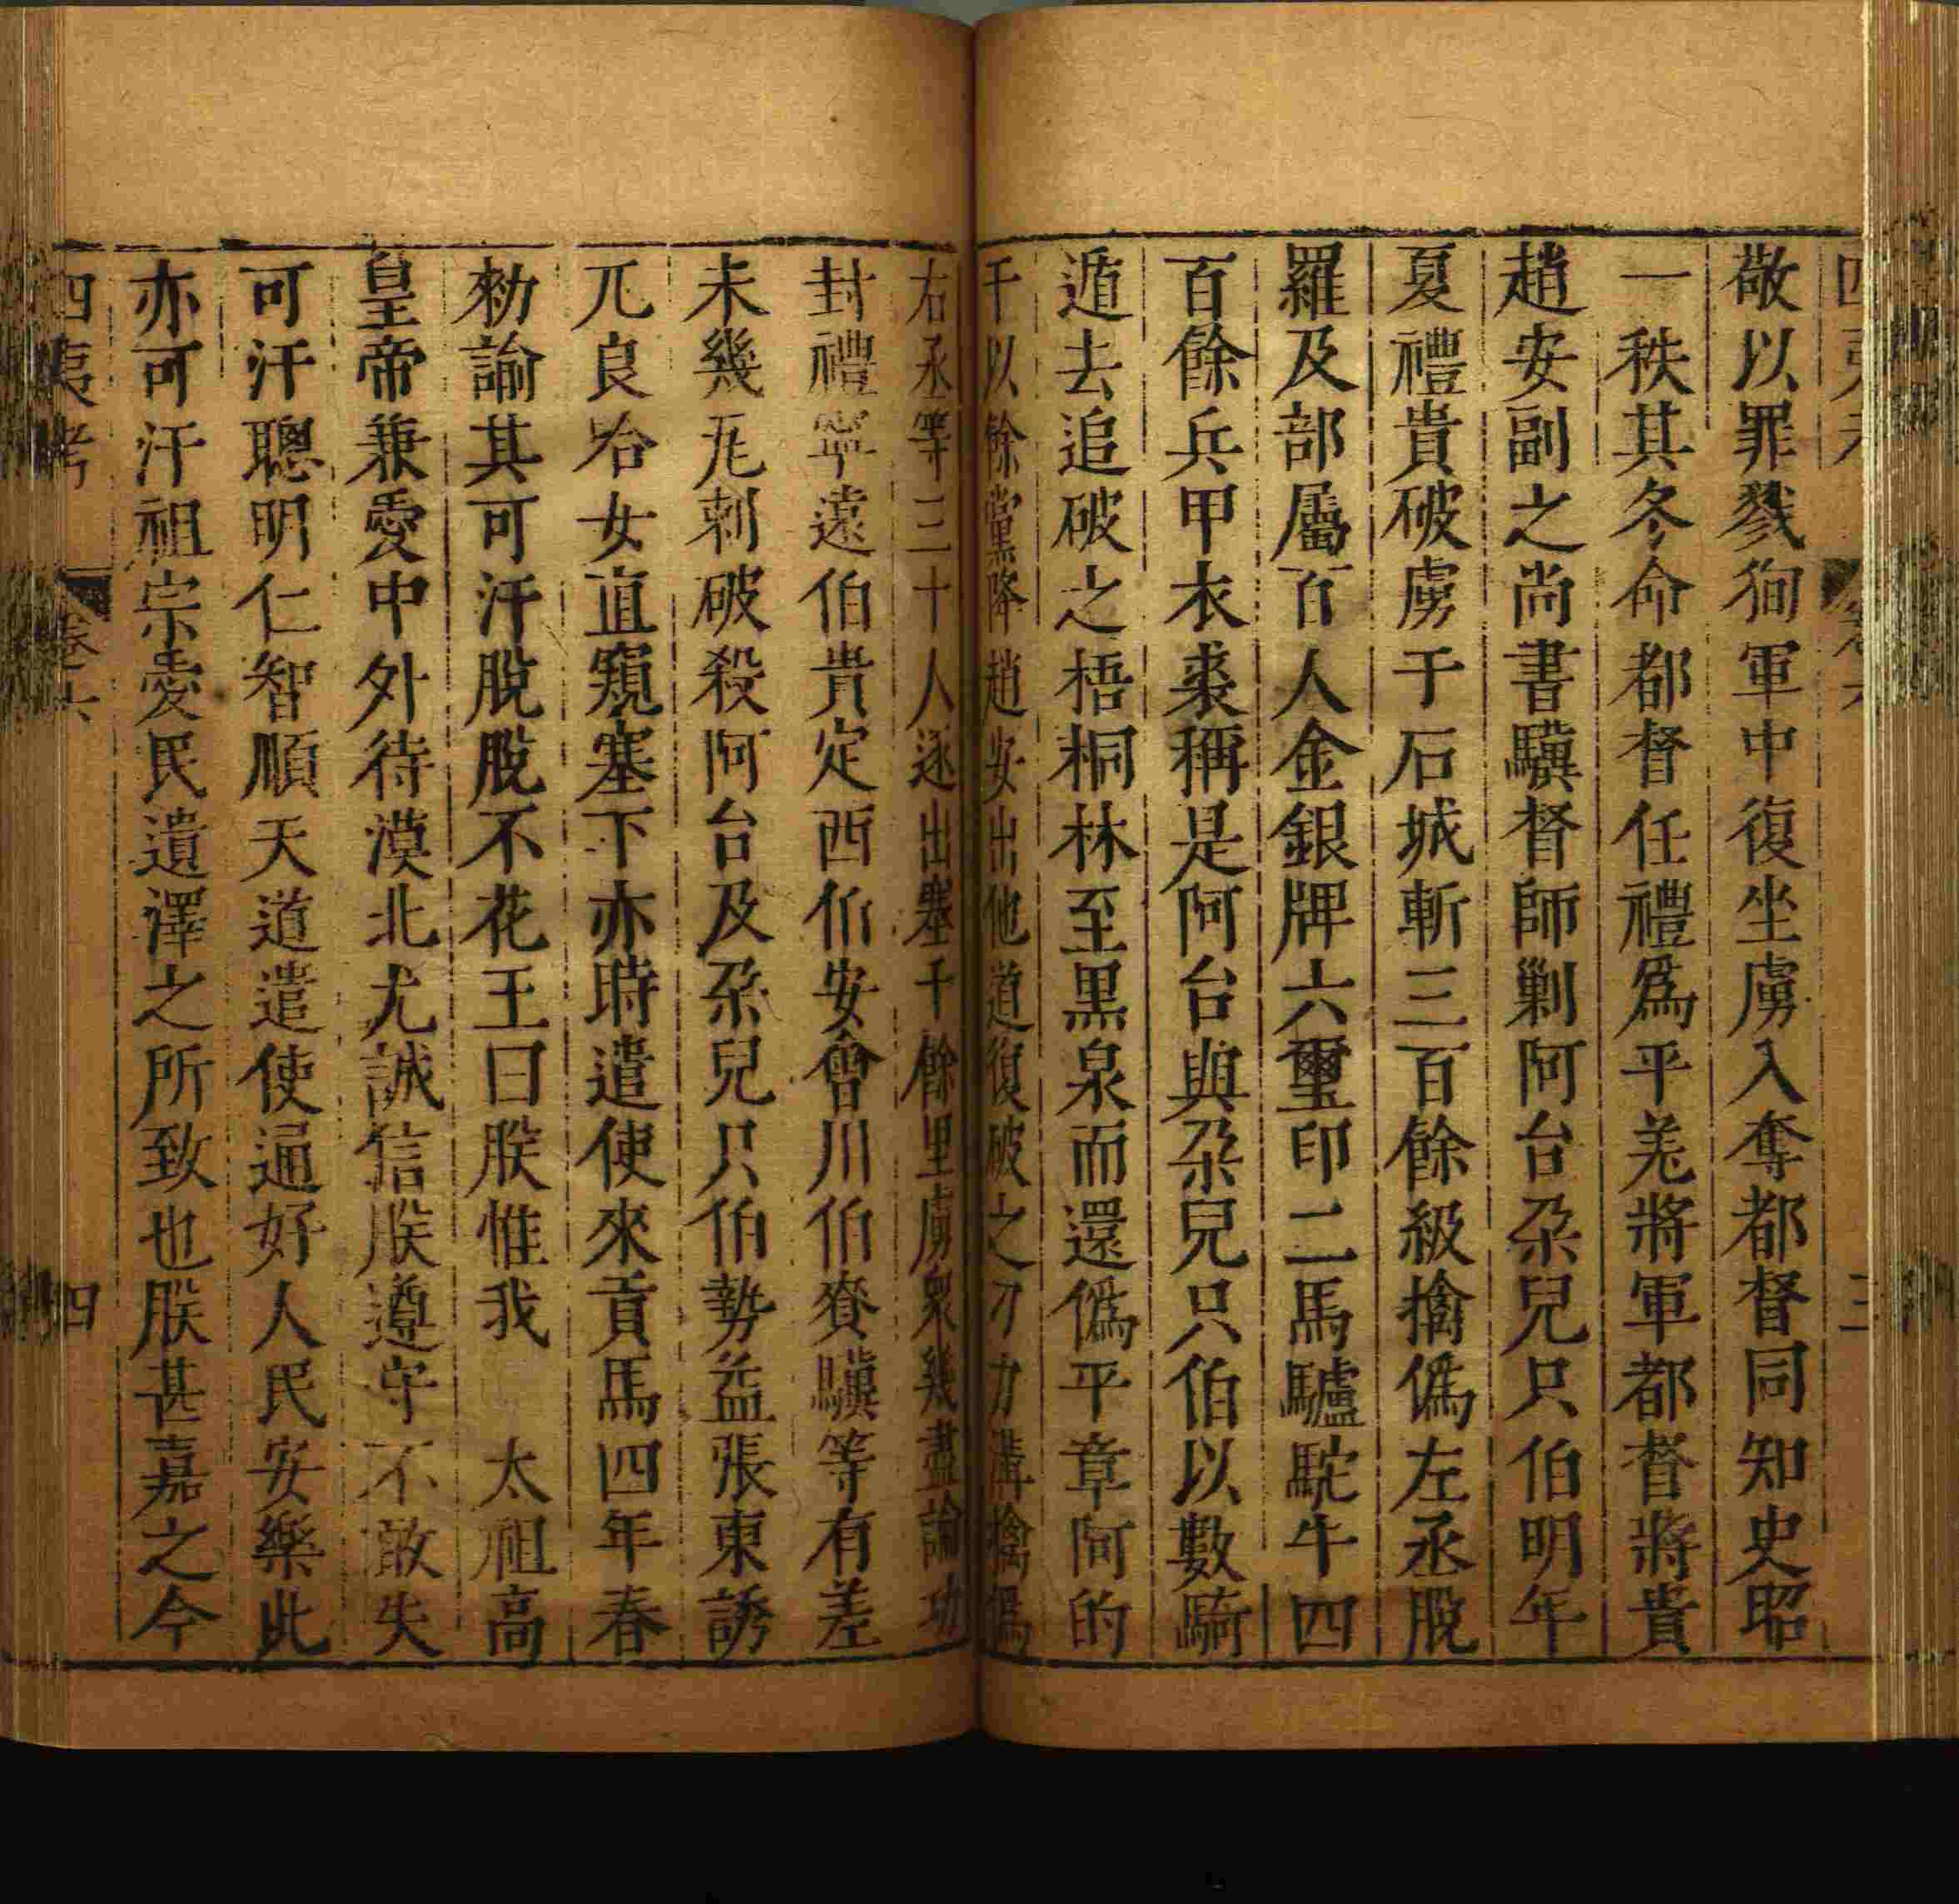 敬以罪戮狥軍中復坐虜入奪都督同知史昭
一秩其冬命都督任禮爲平羌將軍都督將貴
趙安副之尚書驥督師剿阿台朶兒只伯明年
夏禮貴破虜于石城斬三百餘級擒僞左丞脫
羅及部屬百人金銀牌六璽印二馬驢駝牛四
百餘兵甲衣裘稱是阿台與朶兒只伯以數騎
遁去追破之梧桐林至黑泉而還僞平章阿的
干以餘黨降趙安出他道復破之刁力溝擒僞
右丞等三十人逐出塞千餘里虜衆幾盡論功
封禮寧遠伯貴定西伯安會川伯賚驥等有差
未幾瓦剌破殺阿台及朶兒只伯勢益張東誘
兀良哈女直窺塞下亦時遣使來貢馬四年春
勑諭其可汗脫脫不花王曰朕惟我 太祖高
皇帝兼愛中外待漠北尤誠信朕遵守不敢失
可汗聰明仁智順天道遣使通好人民安樂此
亦可汗祖宗愛民遺澤之所致也朕甚嘉之今
四夷考 卷六 四